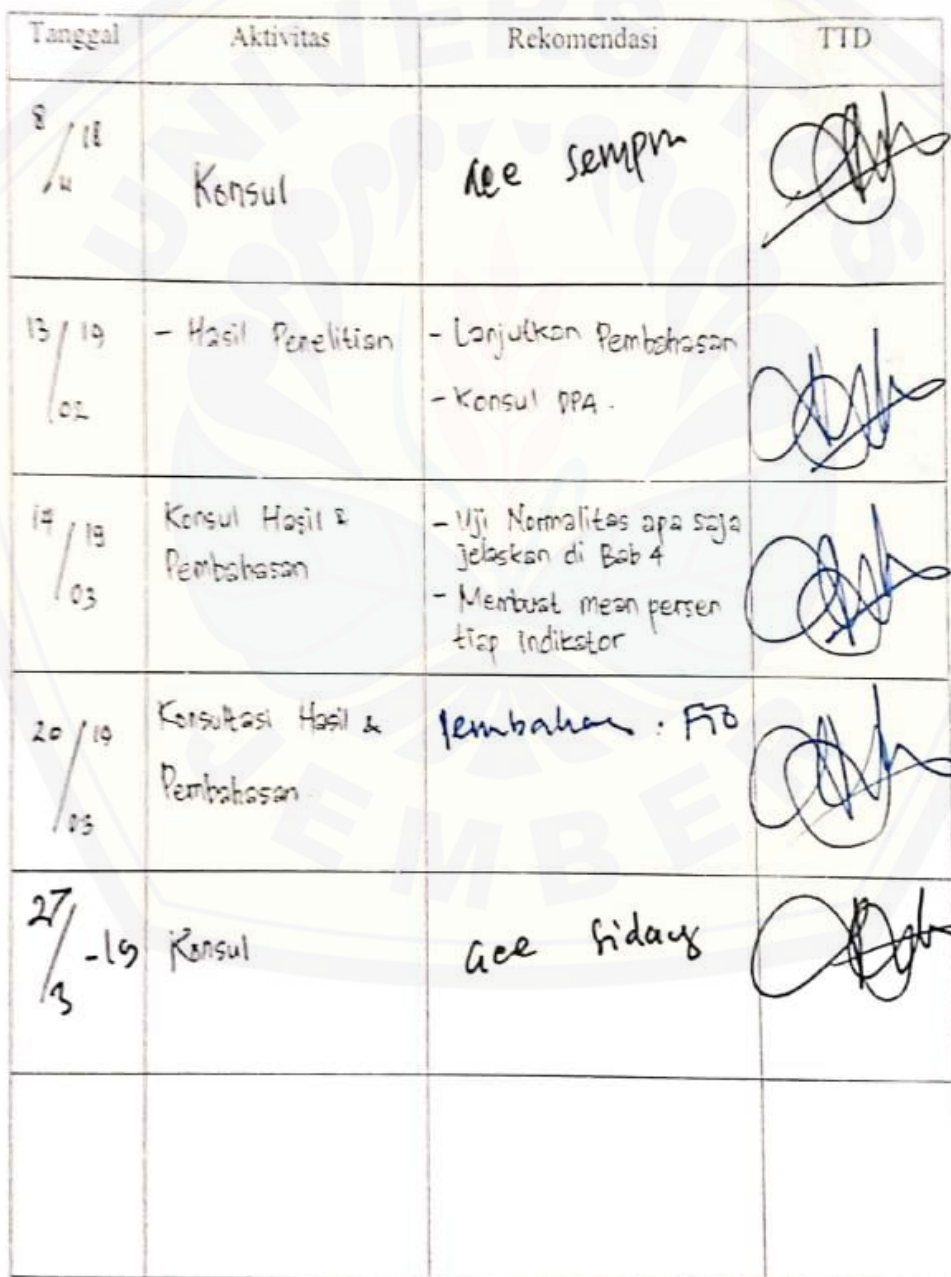 Tanggal Aktivitas Rekomendasi TTD
8 / 18
/ 11
Konsul
acc sempro
13 / 19
/ 02
- Hasil Penelitian
- Lanjutkan Pembahasan
- Konsul DPA.
/ 19
/ 03
Konsul Hasil &
Pembahasan
- Uji Normalitas apa saja
jelaskan di Bab 4
- Membuat mean persen
tiap indikator
20 / 19
/ 03
Konsultasi Hasil &
Pembahasan
Pembahasan :
27
/ 3 -19
Konsul
acc Sidang
UNIVERSITAS
JEMBER